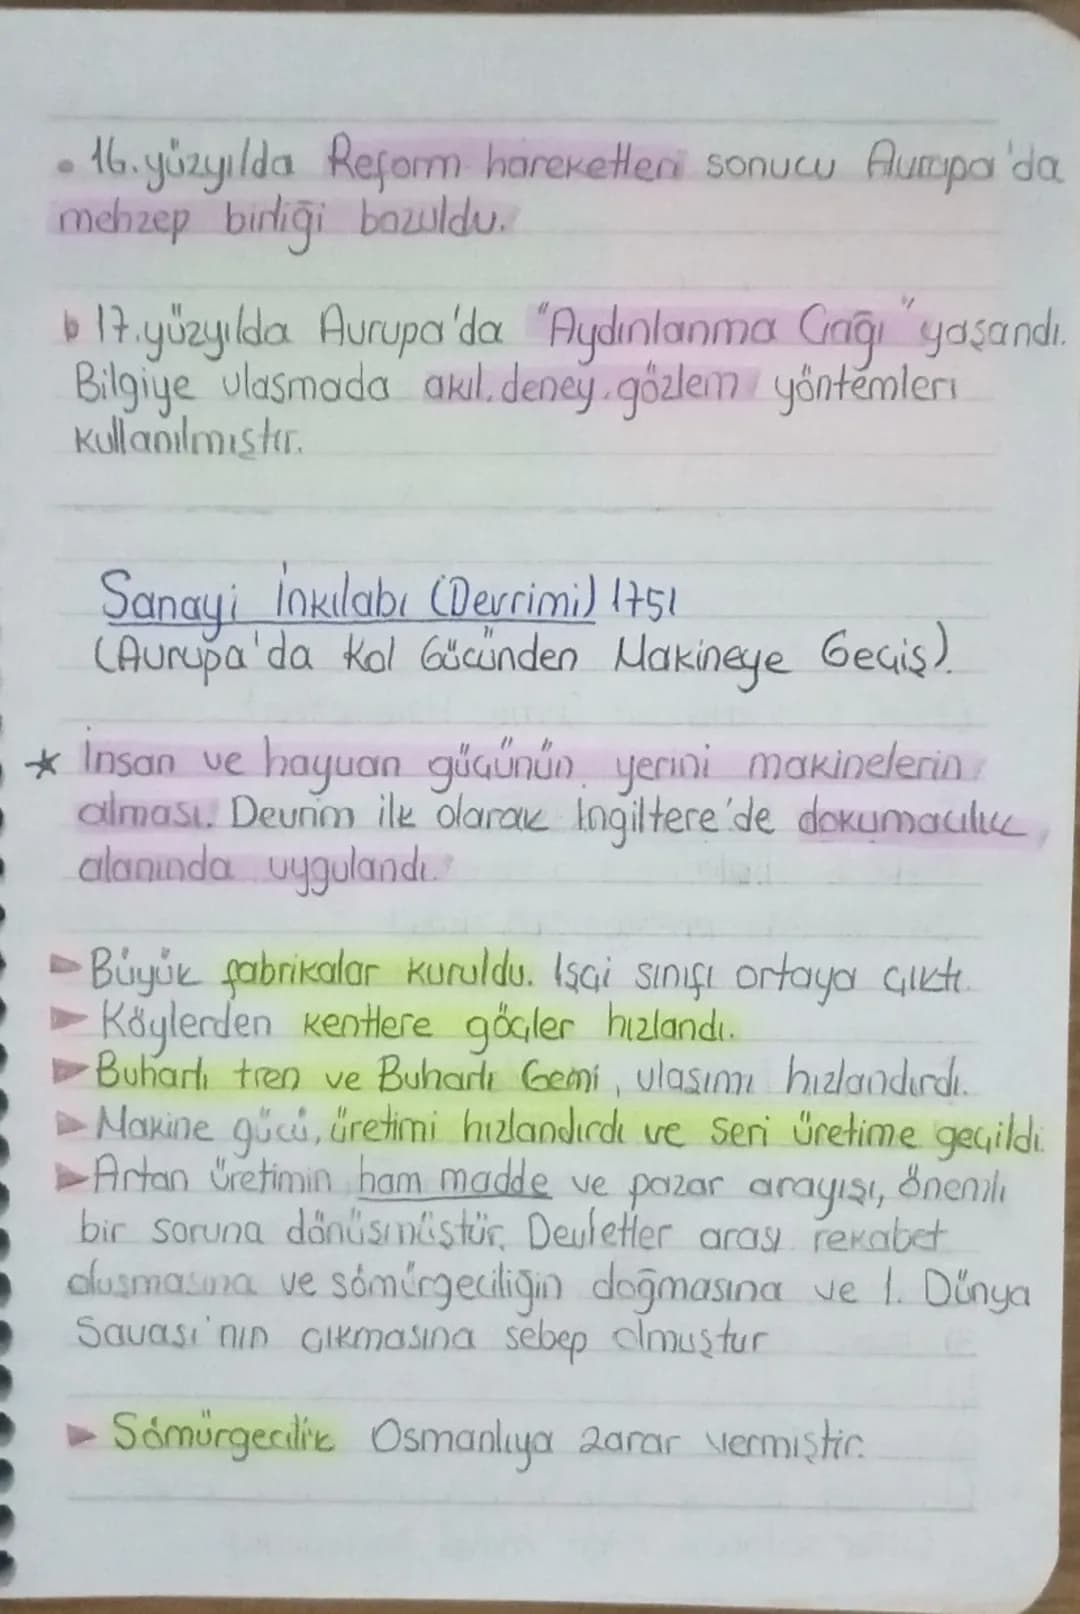 • 16.yüzyılda Reform hareketleri sonucu Avrupa'da
mehzep birliği bozuldu.
17.yüzyılda Avrupa'da "Aydınlanma Çağı" yaşandı.
Bilgiye ulaşmada akıl, deney, gözlem yöntemleri
kullanılmıştır.
Sanayi İnkılabı (Devrimi) 1751
(Avrupa'da Kol Gücünden Makineye Geçiş).
* İnsan ve hayvan gücünün yerini makinelerin
alması. Devrim ilk olarak İngiltere'de dokumacılık
alanında uygulandı.
► Büyük fabrikalar kuruldu. İşçi sınıfı ortaya çıktı.
► Köylerden kentlere göçler hızlandı.
► Buharlı tren ve Buharlı Gemi, ulaşımı hızlandırdı.
► Makine gücü, üretimi hızlandırdı ve seri üretime geçildi.
► Artan üretimin ham madde ve pazar arayışı, önemli
bir soruna dönüşmüştür. Devletler arası rekabet
oluşmasına ve sömürgeciliğin doğmasına ve 1. Dünya
Savaşı'nın çıkmasına sebep olmuştur
► Sömürgecilik Osmanlıya zarar vermiştir.